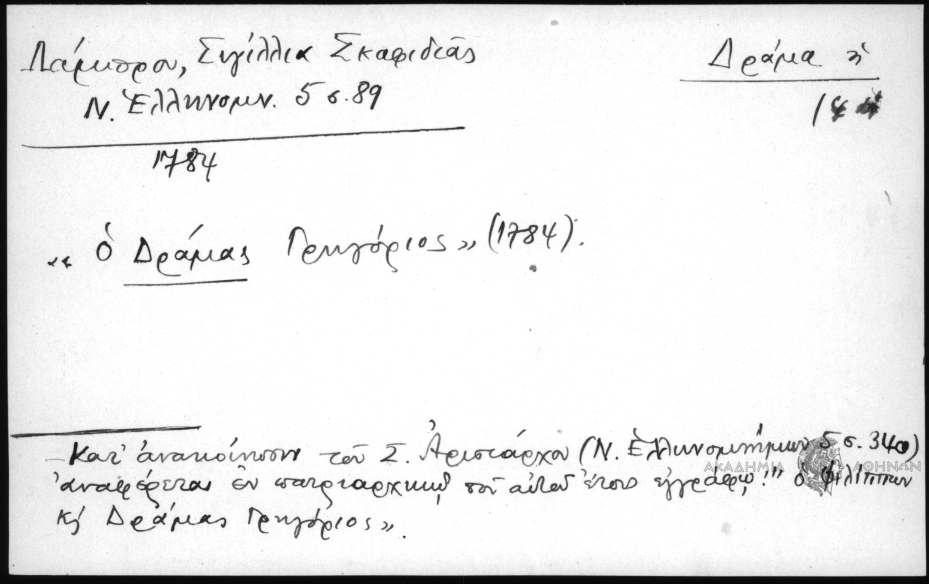 Λάμπρου, Σιγίλλια Σκαφιδιᾶς
Δράμα ἡ
Ν. Ἑλληνομν. 5 σ. 89
1784
« ὁ Δράμας Γρηγόριος » (1784).
Κατ' ἀνακοίνωσιν τοῦ Σ. Ἀριστάρχου (Ν. Ἑλληνομνήμων 5 σ. 340)
ἀναφέρεται ἐν πατριαρχικῷ τοῦ αὐτοῦ ἔτους ἐγγράφῳ: " ὁ Φιλίππων
κ̣ Δράμας Γρηγόριος ».
ΑΚΑΔΗΜΙΑ ΑΘΗΝΩΝ